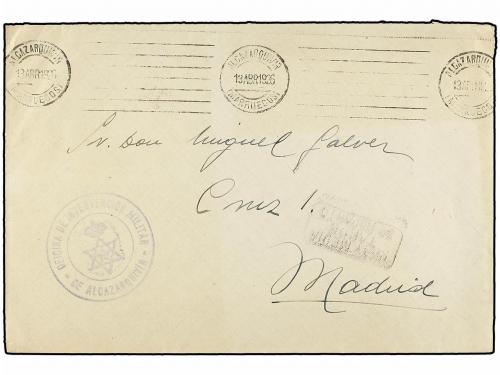 ALCAZARQUIVIR
13 ABR 1936
(MARRUECOS)
ALCAZARQUIVIR
13 ABR 1936
(MARRUECOS)
ALCAZARQUIVIR
13 ABR
Sr. Don Miguel Galver
Cruz 1.
Madrid
OFICINA DE INTERVENCION MILITAR
- DE ALCAZARQUIVIR -